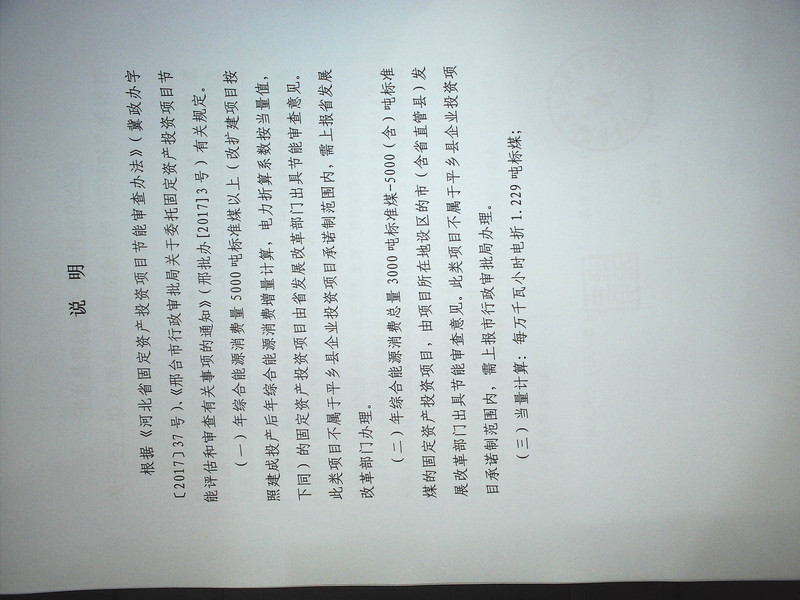 说 明
根据《河北省固定资产投资项目节能审查办法》（冀政办字
〔2017〕37 号）、《邢台市行政审批局关于委托固定资产投资项目节
能评估和审查有关事项的通知》（邢批办[2017]3 号）有关规定。
（一）年综合能源消费量 5000 吨标准煤以上（改扩建项目按
照建成投产后年综合能源消费增量计算，电力折算系数按当量值，
下同）的固定资产投资项目由省发展改革部门出具节能审查意见。
此类项目不属于平乡县企业投资项目承诺制范围内，需上报省发展
改革部门办理。
（二）年综合能源消费总量 3000 吨标准煤-5000（含）吨标准
煤的固定资产投资项目，由项目所在地设区的市（含省直管县）发
展改革部门出具节能审查意见。此类项目不属于平乡县企业投资项
目承诺制范围内，需上报市行政审批局办理。
（三）当量计算：每万千瓦小时电折 1.229 吨标煤；